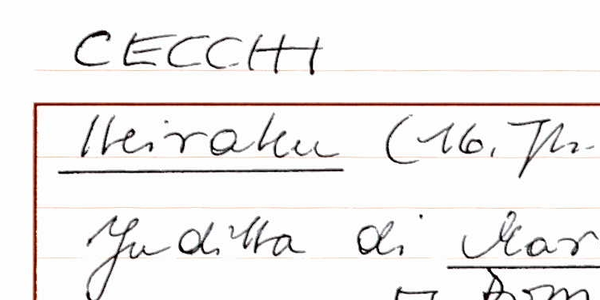 CECCHI
Heiraku (16. Jh.
Juditta di Mar
Dom